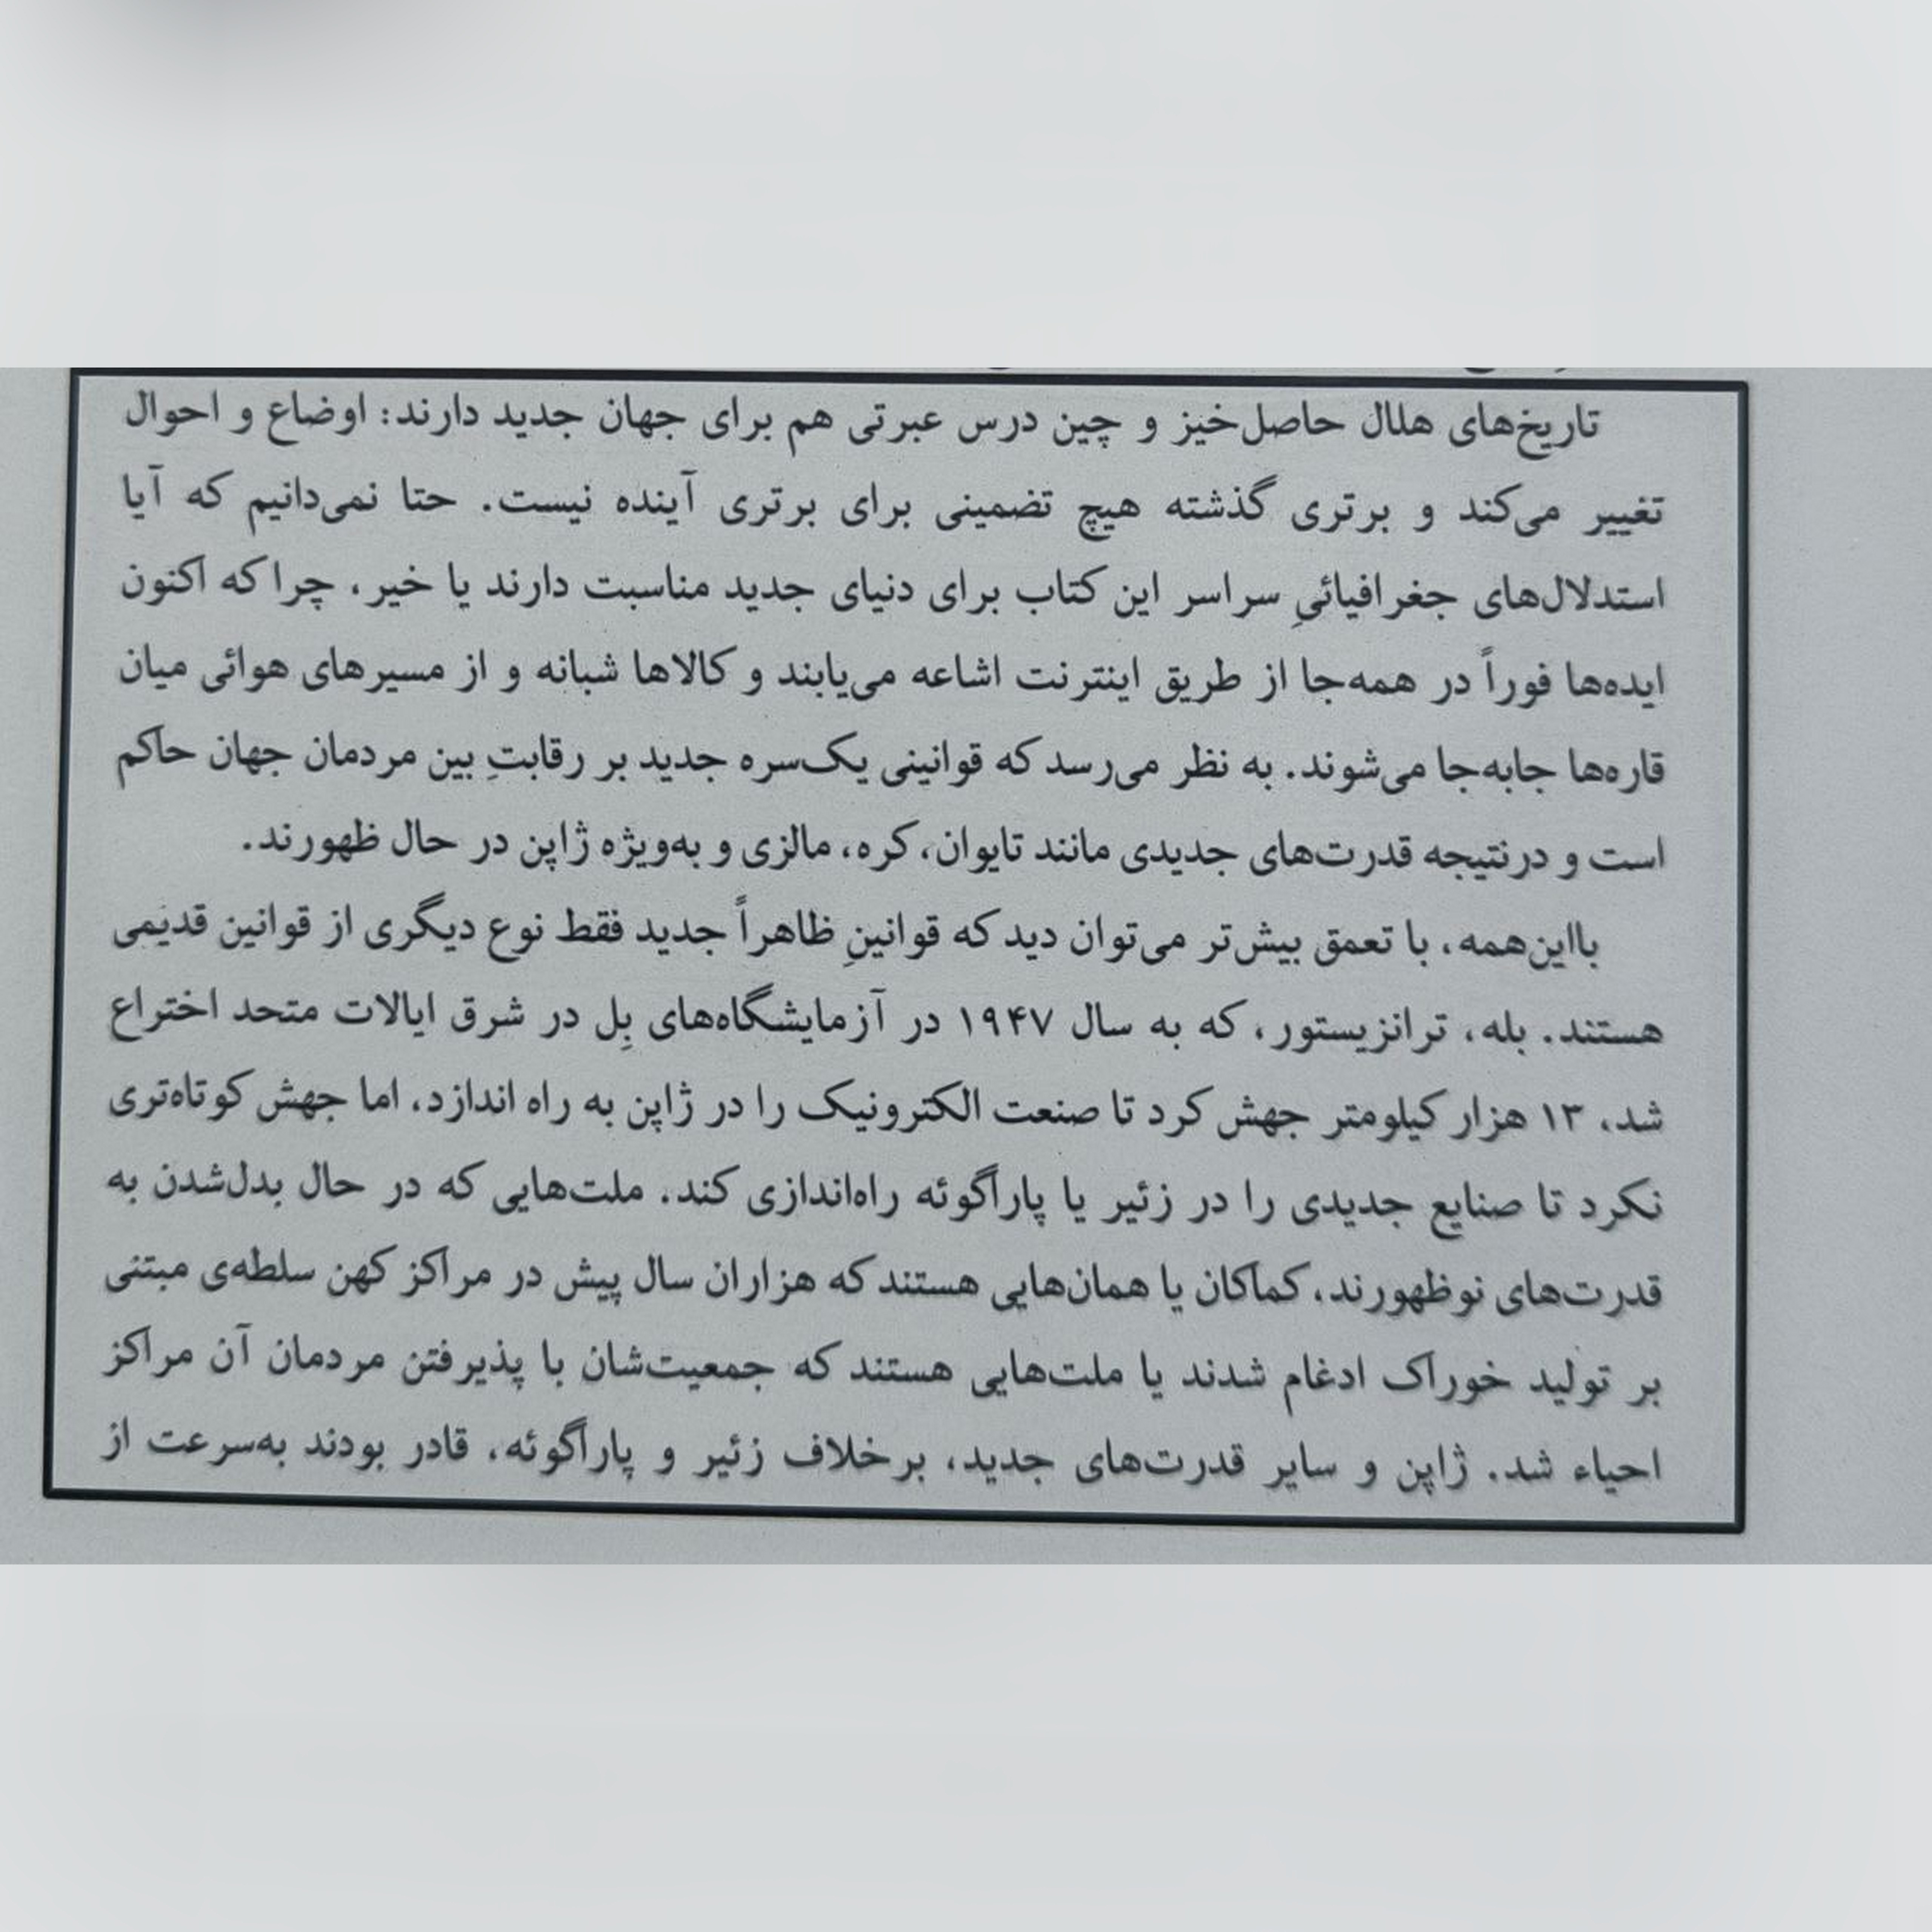 تاریخ‌های هلال حاصل‌خیز و چین درس عبرتی هم برای جهان جدید دارند: اوضاع و احوال
تغییر می‌کند و برتری گذشته هیچ تضمینی برای برتری آینده نیست. حتا نمی‌دانیم که آیا
استدلال‌های جغرافیائیِ سراسر این کتاب برای دنیای جدید مناسبت دارند یا خیر، چرا که اکنون
ایده‌ها فوراً در همه‌جا از طریق اینترنت اشاعه می‌یابند و کالاها شبانه و از مسیرهای هوائی میان
قاره‌ها جابه‌جا می‌شوند. به نظر می‌رسد که قوانینی یک‌سره جدید بر رقابتِ بین مردمان جهان حاکم
است و درنتیجه قدرت‌های جدیدی مانند تایوان، کره، مالزی و به‌ویژه ژاپن در حال ظهورند.
بااین‌همه، با تعمق بیش‌تر می‌توان دید که قوانینِ ظاهراً جدید فقط نوع دیگری از قوانین قدیمی
هستند. بله، ترانزیستور، که به سال ۱۹۴۷ در آزمایشگاه‌های بِل در شرق ایالات متحد اختراع
شد، ۱۳ هزار کیلومتر جهش کرد تا صنعت الکترونیک را در ژاپن به راه اندازد، اما جهش کوتاه‌تری
نکرد تا صنایع جدیدی را در زئیر یا پاراگوئه راه‌اندازی کند. ملت‌هایی که در حال بدل‌شدن به
قدرت‌های نوظهورند، کماکان یا همان‌هایی هستند که هزاران سال پیش در مراکز کهن سلطه‌ی مبتنی
بر تولید خوراک ادغام شدند یا ملت‌هایی هستند که جمعیت‌شان با پذیرفتن مردمان آن مراکز
احیاء شد. ژاپن و سایر قدرت‌های جدید، برخلاف زئیر و پاراگوئه، قادر بودند به‌سرعت از